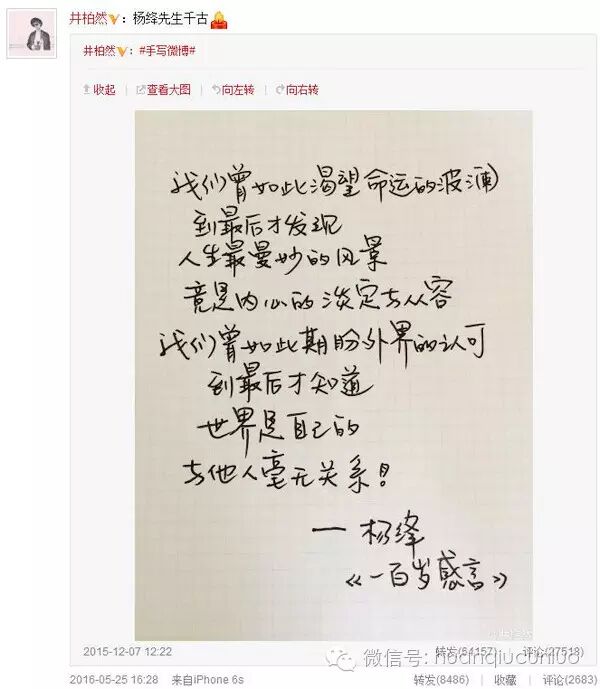 井柏然：杨绛先生千古
井柏然：#手写微博#
收起 查看大图 向左转 向右转
我们曾如此渴望命运的波澜
到最后才发现
人生最曼妙的风景
竟是内心的淡定与从容
我们曾如此期盼外界的认可
到最后才知道
世界是自己的
与他人毫无关系！
一 杨绛
《一百岁感言》
@井柏然
2015-12-07 12:22 转发(64157) 评论(27518)
微信号:
2016-05-25 16:28 来自iPhone 6s 转发(8486) | 收藏 | 评论(2683)